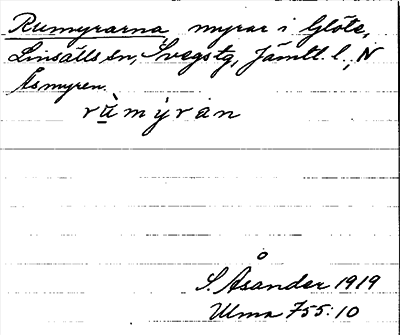 Rumyrarna, myrar i Glöte,
Linsälls sn, Svegs tg, Jämtl. l., N
Åsmyren.
rùmýran
S. Åsander 1919
Ulma 755:10